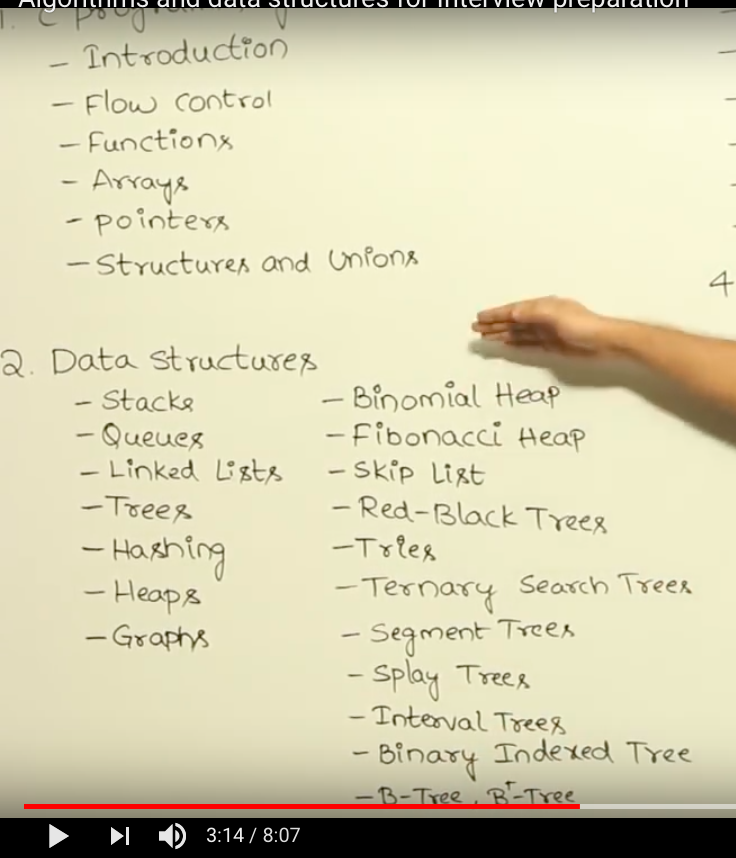 Algorithms and data structures for interview preparation
1. C programming
- Introduction
- Flow control
- Functions
- Arrays
- pointers
- Structures and Unions
4
2. Data Structures
- Stacks
- Queues
- Linked Lists
- Trees
- Hashing
- Heaps
- Graphs
- Binomial Heap
- Fibonacci Heap
- Skip List
- Red-Black Trees
- Tries
- Ternary Search Trees
- Segment Trees
- Splay Trees
- Interval Trees
- Binary Indexed Tree
- B-Tree, B⁺-Tree
3:14 / 8:07